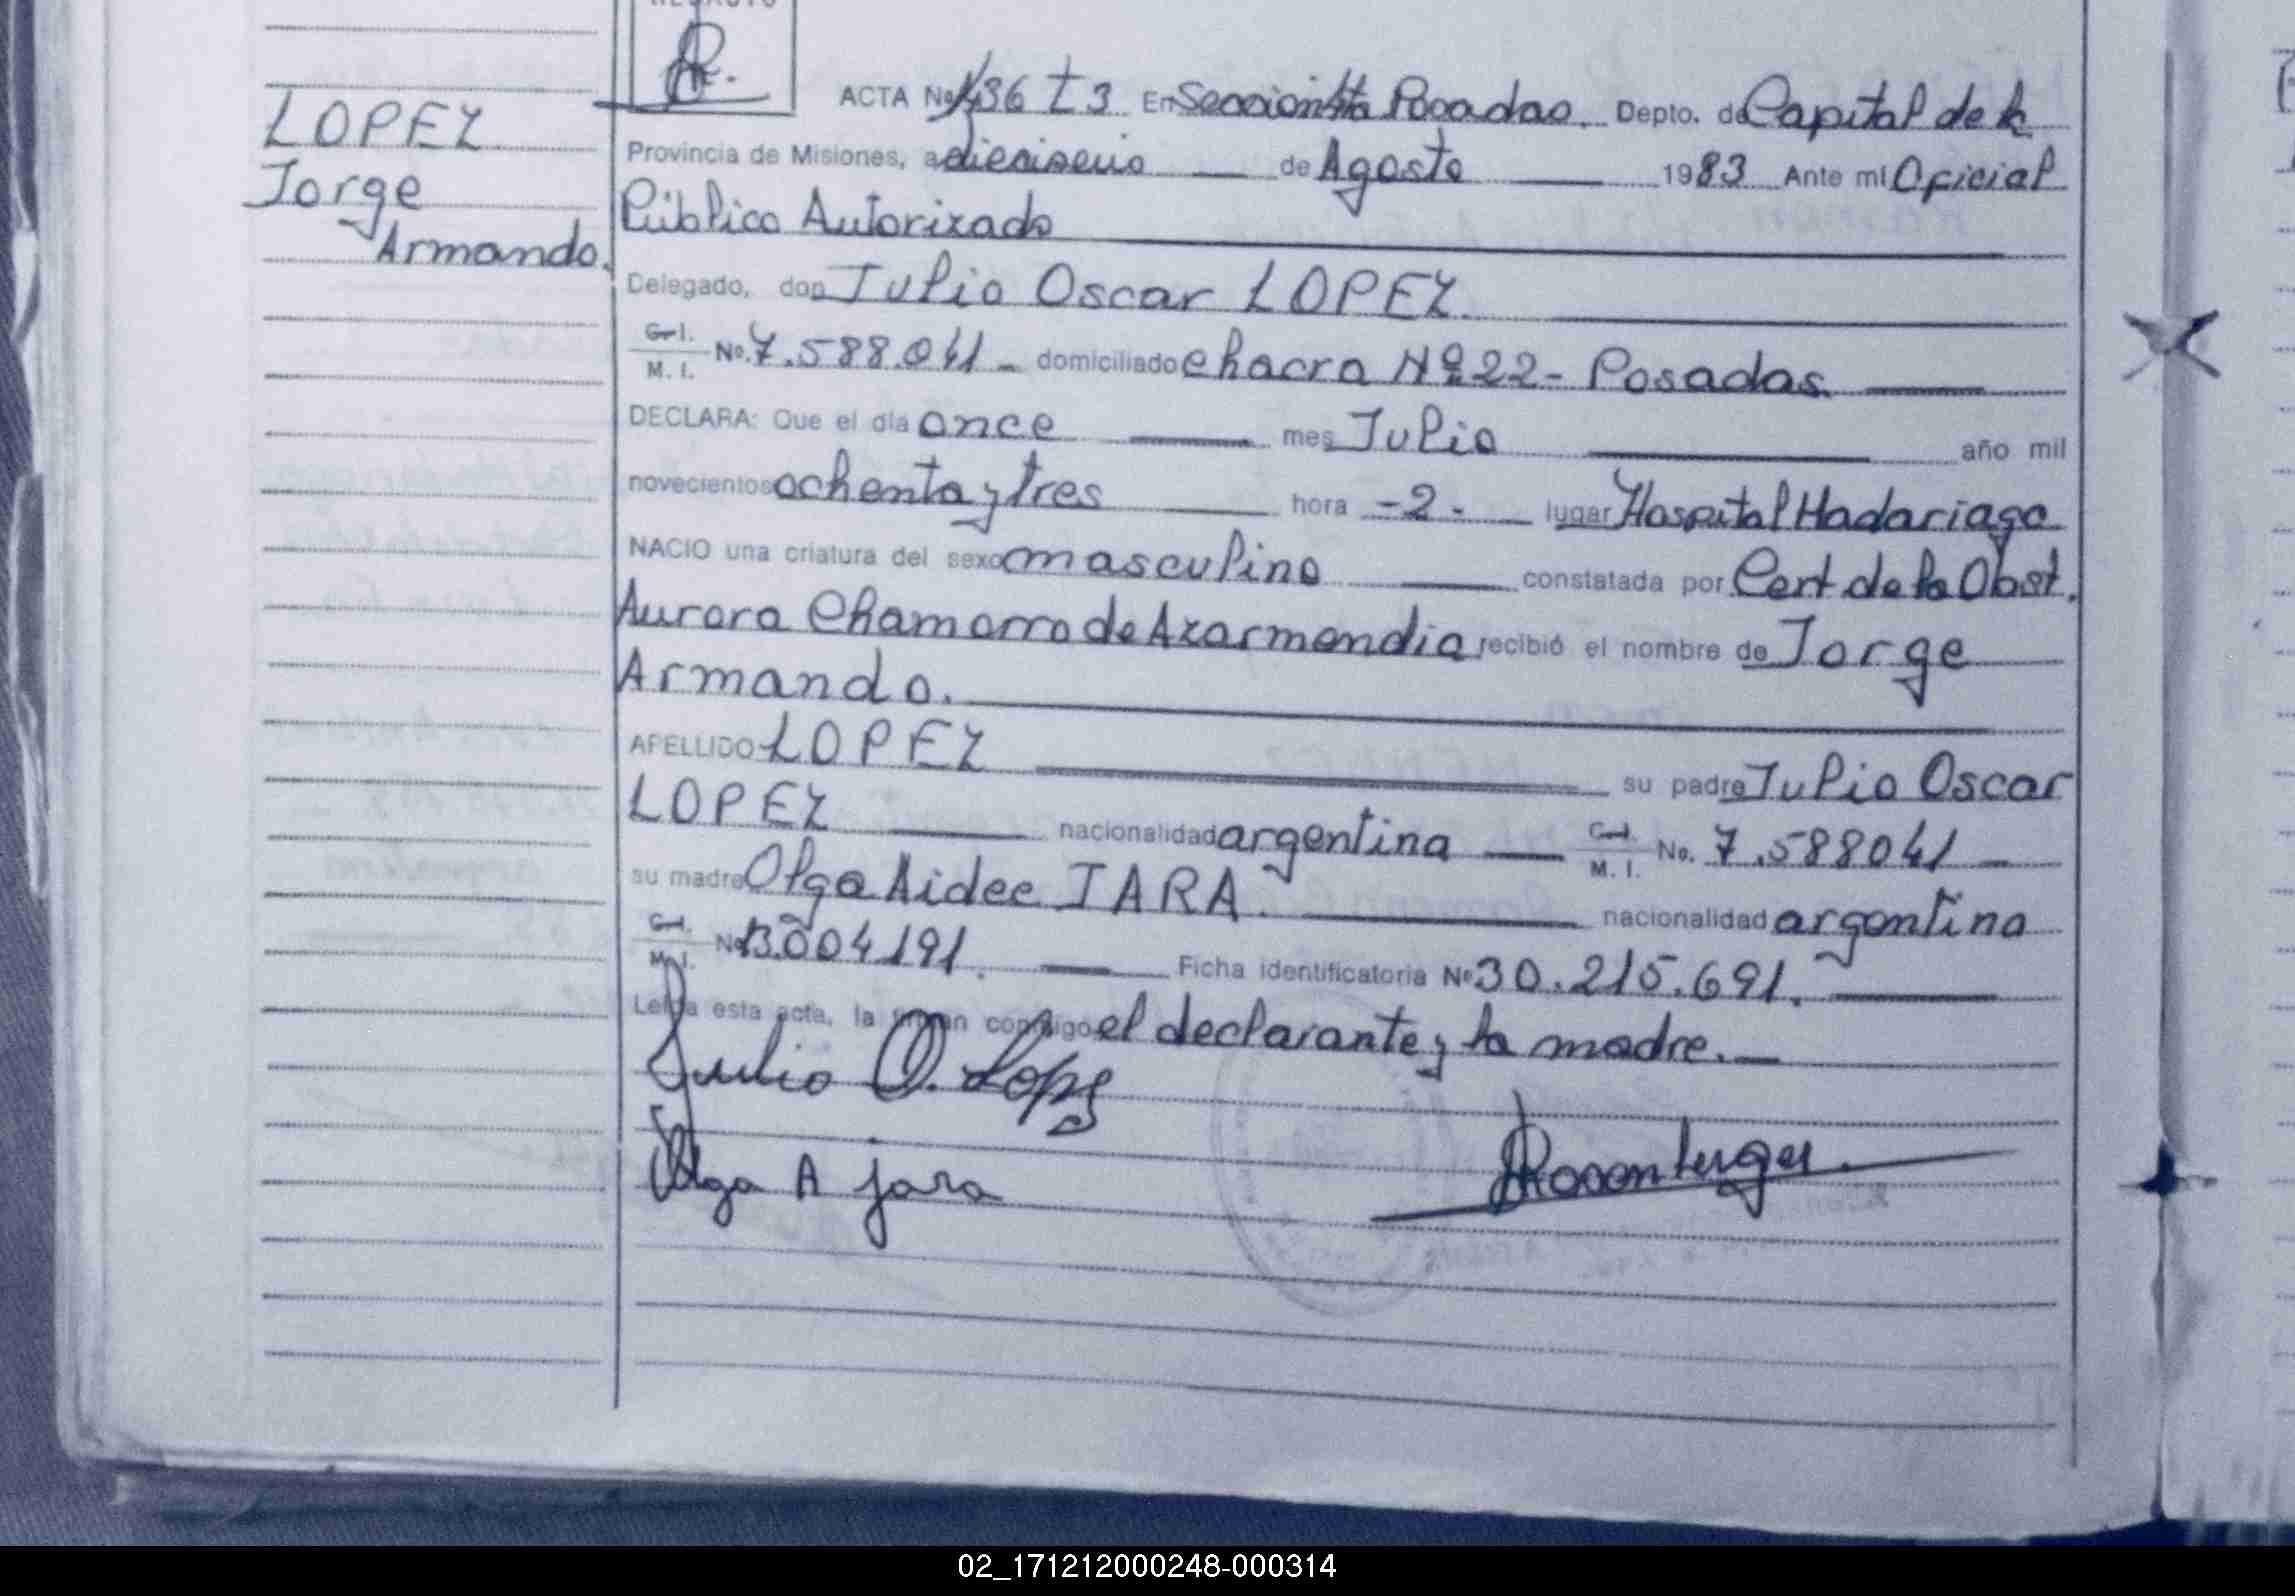 LOPEZ
Jorge
Armando.
ACTA No 1436 T 3 En Sección 4ta Posadas. Depto. de Capital de la
Provincia de Misiones, a dieciseis de Agosto 1983 Ante mi Oficial
Público Autorizado
Delegado, don Julio Oscar LOPEZ.
C.I.
M. I. No. 7.588.041 - domiciliado chacra Nº 22 - Posadas.
DECLARA: Que el día once mes Julio año mil
novecientos ochenta y tres hora - 2 - lugar Hospital Madariaga
NACIO una criatura del sexo masculino constatada por Cert de la Obst.
Aurora Chamorro de Azarmendia recibió el nombre de Jorge
Armando.
APELLIDO LOPEZ su padre Julio Oscar
LOPEZ nacionalidad argentina M. I. No. 7.588041 -
su madre Olga Aidee JARA. nacionalidad argentina
M. I. No 13.004191. Ficha identificatoria Nº 30.215.691.
Leída esta acta, la firman conmigo el declarante y la madre.
Julio O. Lopez
Olga A Jara
02_171212000248-000314